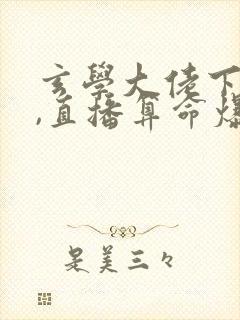 玄學大佬下
,直播算命爆
是美三々